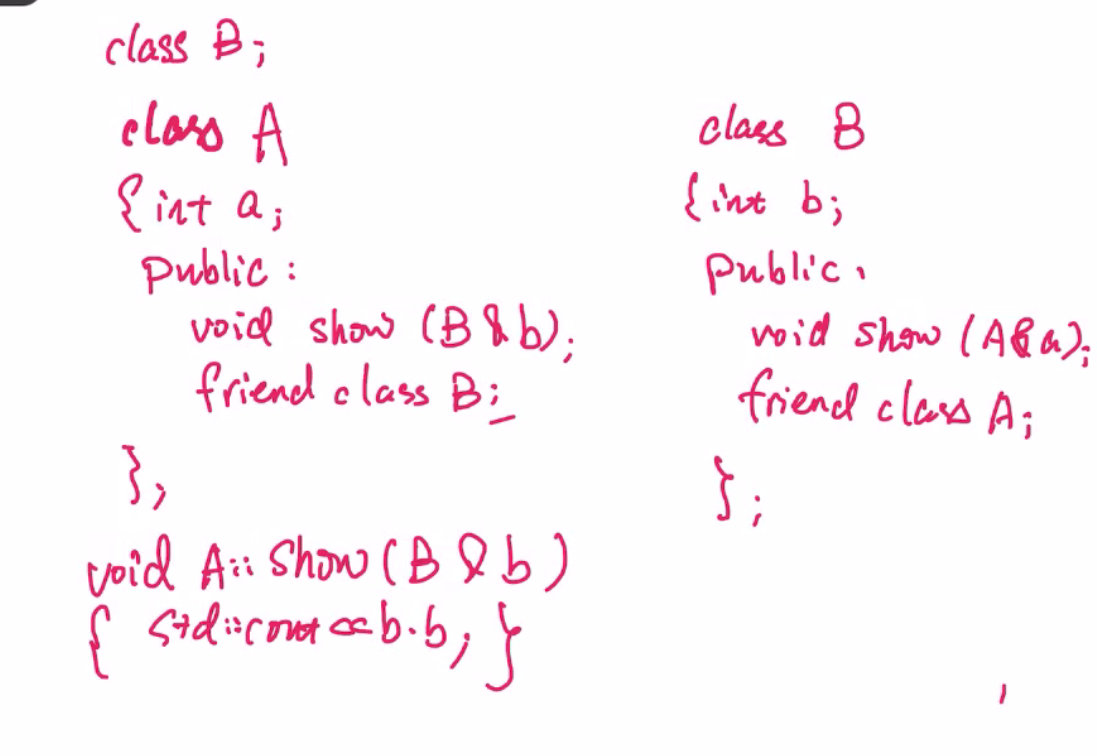 class B;
class A
{int a;
public:
void show (B &b);
friend class B;
};
void A::show (B & b)
{ std::cout << b.b; }
class B
{int b;
public:
void show (A& a);
friend class A;
};